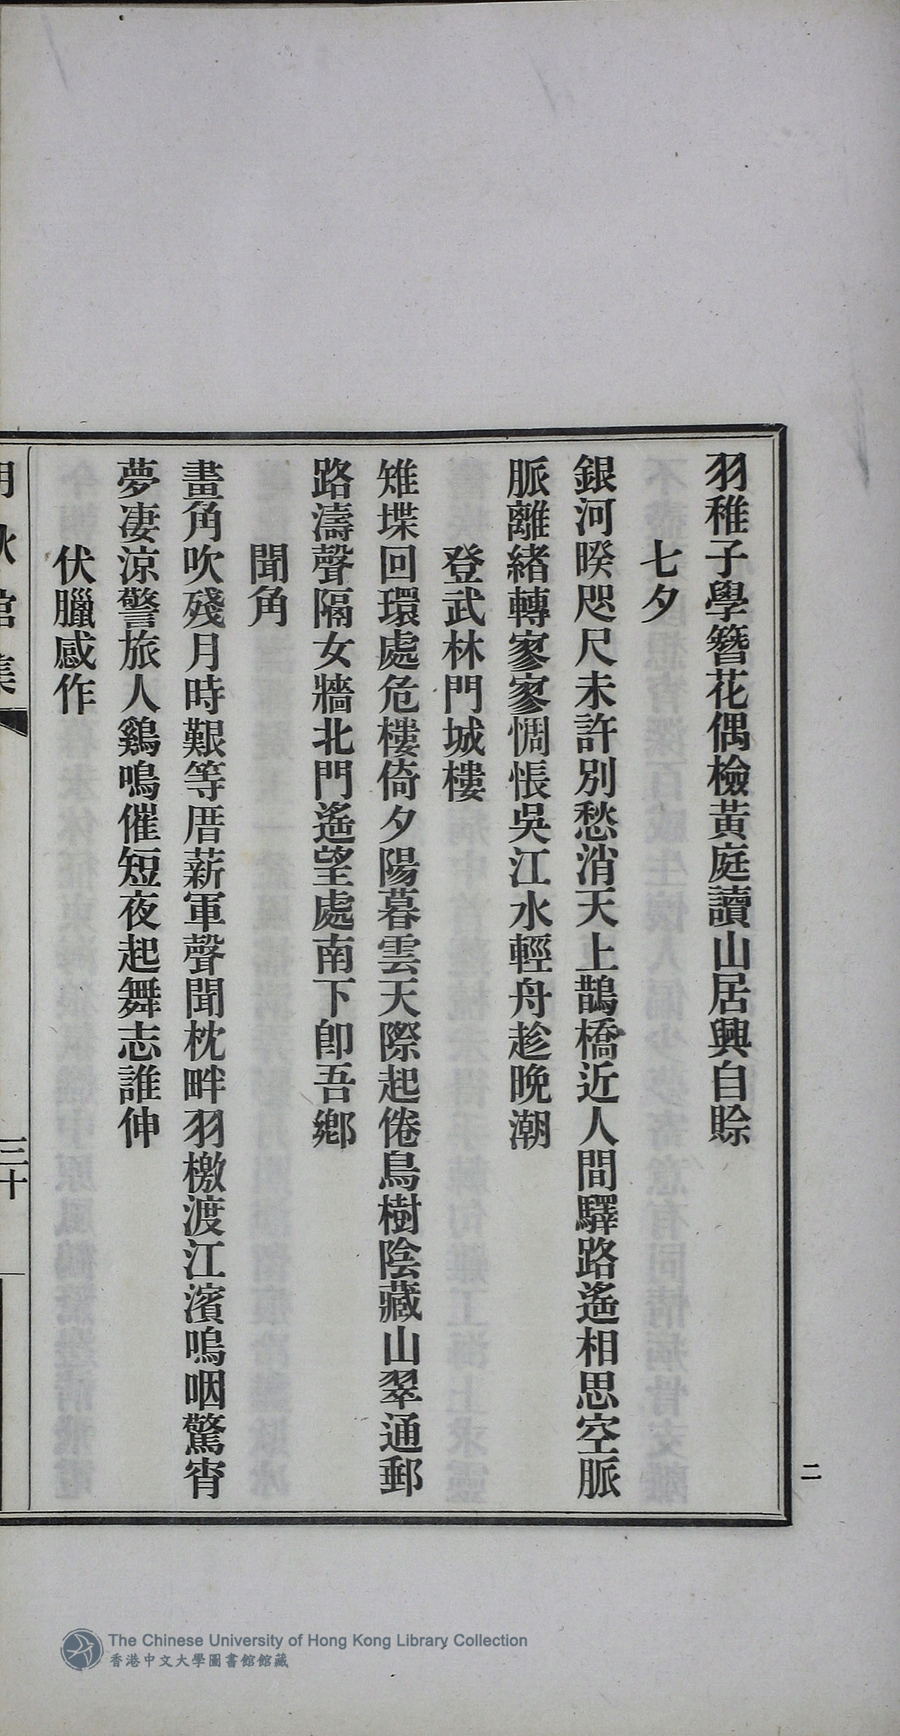 羽稚子學簪花偶檢黃庭讀山居興自賒
七夕
銀河暌咫尺未許別愁消天上鵲橋近人間驛路遙相思空脈
脈離緒轉寥寥惆悵吳江水輕舟趁晚潮
登武林門城樓
雉堞回環處危樓倚夕陽暮雲天際起倦鳥樹陰藏山翠通郵
路濤聲隔女牆北門遙望處南下卽吾鄉
聞角
畫角吹殘月時艱等厝薪軍聲聞枕畔羽檄渡江濱嗚咽驚宵
夢凄涼警旅人鷄鳴催短夜起舞志誰伸
伏臘感作
三十
二
The Chinese University of Hong Kong Library Collection
香港中文大學圖書館館藏